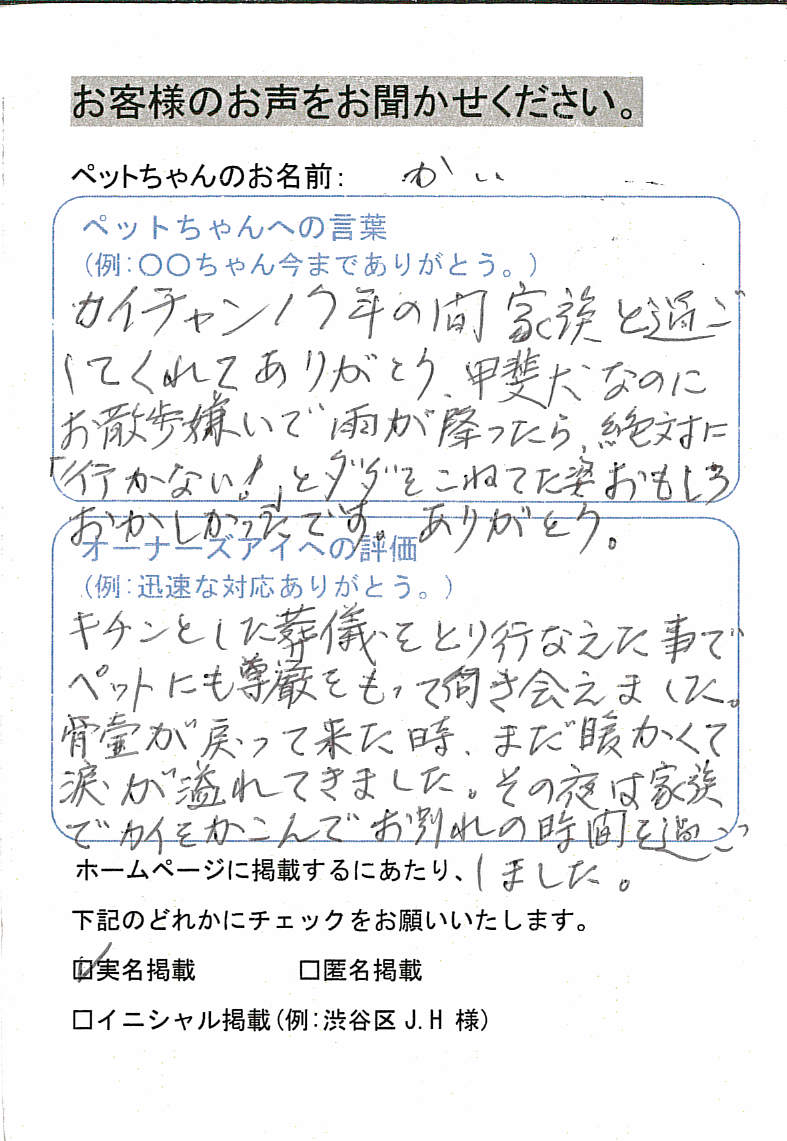 お客様のお声をお聞かせください。
ペットちゃんのお名前: かい
ペットちゃんへの言葉
(例:〇〇ちゃん今までありがとう。)
カイチャン17年の間 家族と過ご
してくれてありがとう、甲斐犬なのに
お散歩嫌いで雨が降ったら、絶対に
「行かない!」とダダをこねてた姿おもしろ
おかしかったです。ありがとう。
オーナーズアイへの評価
(例:迅速な対応ありがとう。)
キチンとした葬儀をとり行なえた事で
ペットにも尊厳をもって向き会えました。
骨壷が戻って来た時、まだ暖かくて
涙が溢れてきました。その夜は家族
でカイをかこんでお別れの時間を過ご
しました。
ホームページに掲載するにあたり、
下記のどれかにチェックをお願いいたします。
☑実名掲載 □匿名掲載
□イニシャル掲載(例:渋谷区 J.H 様)